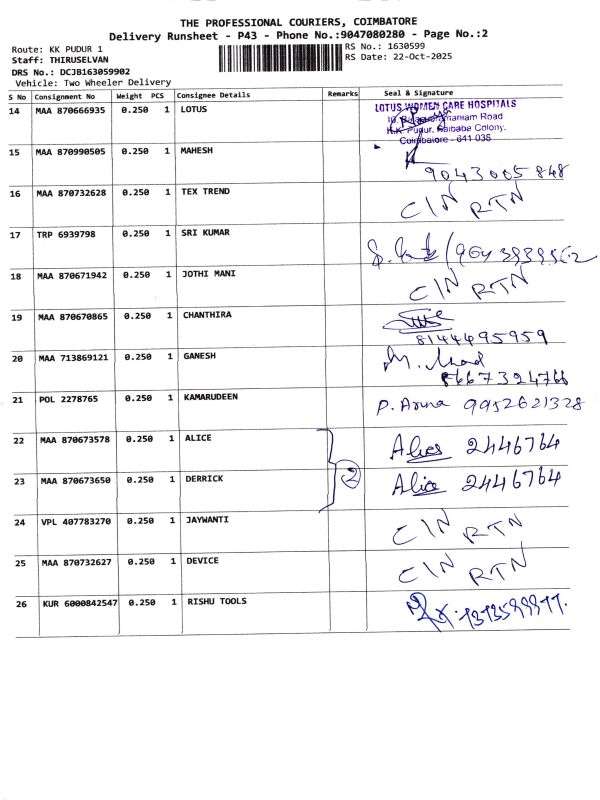 THE PROFESSIONAL COURIERS, COIMBATORE
Delivery Runsheet - P43 - Phone No.:9047080280 - Page No.:2
Route: KK PUDUR 1 RS No.: 1630599
Staff: THIRUSELVAN RS Date: 22-Oct-2025
DRS No.: DCJB163059902
Vehicle: Two Wheeler Delivery
S No Consignment No Weight PCS Consignee Details Remarks Seal & Signature
14 MAA 870666935 0.250 1 LOTUS LOTUS WOMEN CARE HOSPITALS
Road
K.K. Pudur, Saibaba Colony,
Coimbatore - 641 038
15 MAA 870990505 0.250 1 MAHESH
9043005848
16 MAA 870732628 0.250 1 TEX TREND C/N RTN
17 TRP 6939798 0.250 1 SRI KUMAR
18 MAA 870671942 0.250 1 JOTHI MANI C/N RTN
19 MAA 870670865 0.250 1 CHANTHIRA
8144495959
20 MAA 713869121 0.250 1 GANESH
8667324766
21 POL 2278765 0.250 1 KAMARUDEEN P. Aruna 9952621328
22 MAA 870673578 0.250 1 ALICE Alice 2446764
23 MAA 870673650 0.250 1 DERRICK 2 Alice 2446764
24 VPL 407783270 0.250 1 JAYWANTI C/N RTN
25 MAA 870732627 0.250 1 DEVICE C/N RTN
26 KUR 6000842547 0.250 1 RISHU TOOLS